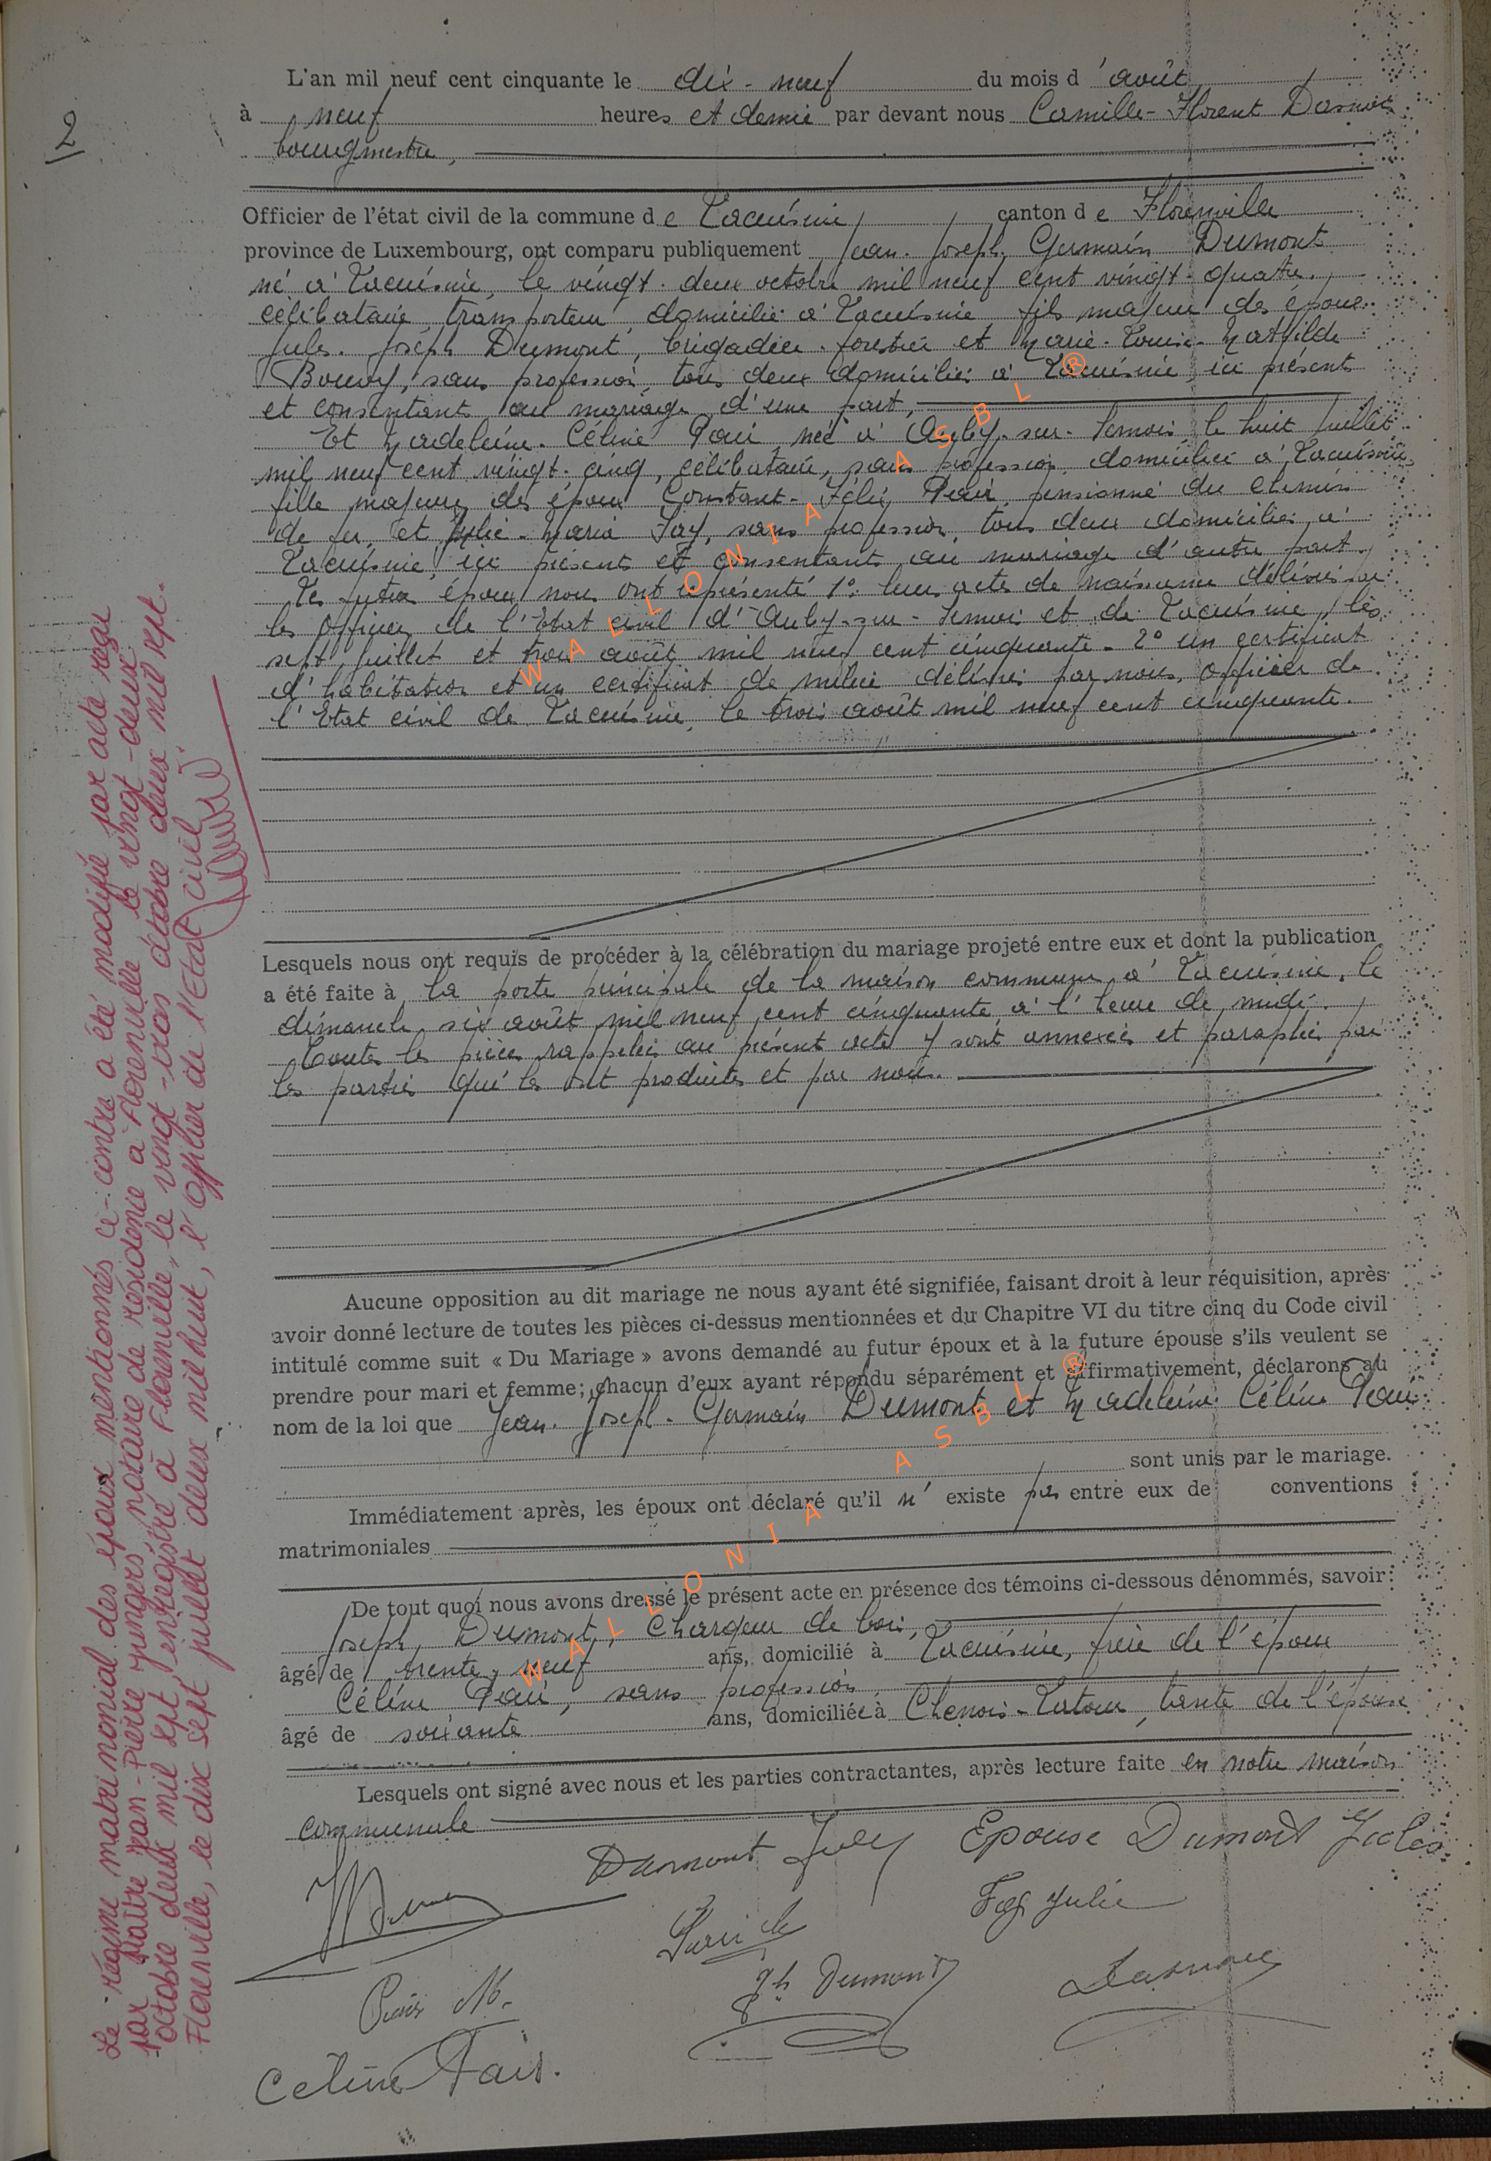 2
L'an mil neuf cent cinquante le dix-neuf du mois d'août
à neuf heures et demie par devant nous Camille-Florent Dasnois
bourgmestre,
Officier de l'état civil de la commune de Lacuisine canton de Florenville
province de Luxembourg, ont comparu publiquement Jean-Joseph-Germain Dumont
né à Lacuisine, le vingt-deux octobre mil neuf cent vingt-quatre,
célibataire, transporteur, domicilié à Lacuisine fils majeur des époux
Jules-Joseph Dumont, brigadier-forestier et Marie-Louise-Mathilde
Bouvy, sans profession, tous deux domiciliés à Lacuisine, ici présents
et consentants au mariage d'une part,
Et Madeleine-Céline Pairi née à Auby-sur-Semois le huit juillet
mil neuf cent vingt-cinq, célibataire, sans profession domiciliée à Lacuisine,
fille majeure des époux Constant-Félix, pensionné du chemin
de fer, et Julie-Maria Fay, sans profession, tous deux domiciliés à
Lacuisine, ici présents et consentants au mariage d'autre part.
Les futurs époux nous ont représenté 1° leurs actes de naissance délivrés par
les officiers de l'Etat civil d'Auby-sur-Semois et de Lacuisine, les
sept juillet et trois août mil neuf cent cinquante. 2° un certificat
d'habitation et un certificat de milice délivrés par nous, officier de
l'Etat civil de Lacuisine, le trois août mil neuf cent cinquante.
Lesquels nous ont requis de procéder à la célébration du mariage projeté entre eux et dont la publication
a été faite à la porte principale de la maison commune à Lacuisine, le
dimanche six août mil neuf cent cinquante à l'heure de midi.
Toutes les pièces rappelées au présent acte y sont annexées et paraphées par
les parties qui les ont produites et par nous.
Aucune opposition au dit mariage ne nous ayant été signifiée, faisant droit à leur réquisition, après
avoir donné lecture de toutes les pièces ci-dessus mentionnées et du Chapitre VI du titre cinq du Code civil
intitulé comme suit « Du Mariage » avons demandé au futur époux et à la future épouse s'ils veulent se
prendre pour mari et femme; chacun d'eux ayant répondu séparément et affirmativement, déclarons au
nom de la loi que Jean-Joseph-Germain Dumont et Madeleine Céline
sont unis par le mariage.
Immédiatement après, les époux ont déclaré qu'il n'existe pas entre eux de conventions
matrimoniales
De tout quoi nous avons dressé le présent acte en présence des témoins ci-dessous dénommés, savoir:
Joseph Dumont, chargeur de bois,
âgé de trente-neuf ans, domicilié à Lacuisine, frère de l'époux
Céline, sans profession,
âgé de soixante ans, domiciliée à Chenois-Latour, tante de l'épouse
Lesquels ont signé avec nous et les parties contractantes, après lecture faite en notre maison
communale
Dumont Jules Epouse Dumont Jules
Fay Julie
Jh Dumont Dasnois
Céline
Le régime matrimonial des époux mentionnés ci-contre a été modifié par acte reçu
par Maître Jean-Pierre, notaire de résidence à Florenville le vingt-deux
octobre deux mil sept enregistré à Florenville, le vingt-trois octobre deux mil sept.
Florenville, le dix sept juillet deux mil huit, l'officier de l'Etat civil,
WALLONIA ASBL ®
WALLONIA ASBL ®